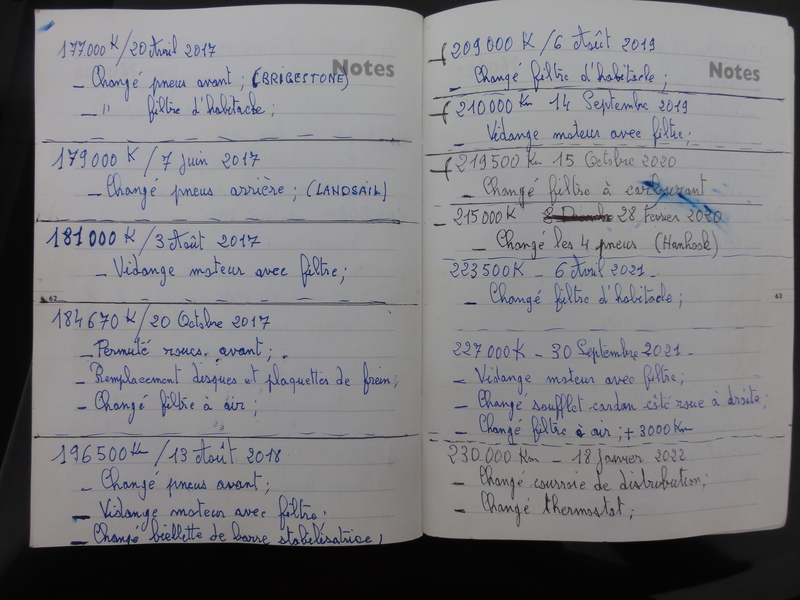 177000 K / 20 Avril 2017
Notes
- Changé pneus avant ; (BRIGESTONE)
- " filtre d'habitacle ;
179000 K / 7 Juin 2017
- Changé pneus arrière ; (LANDSAIL)
181000 K / 3 Août 2017
- Vidange moteur avec filtre ;
62
184670 K / 20 Octobre 2017
- Permuté roues avant ;
- Remplacement disques et plaquettes de frein ;
- Changé filtre à air ;
196500 Km / 13 Août 2018
- Changé pneus avant ;
- Vidange moteur avec filtre.
- Changé biellette de barre stabilisatrice ;
209000 K / 6 Août 2019
Notes
- Changé filtre d'habitacle ;
210000 Km 14 Septembre 2019
- Vidange moteur avec filtre ;
219500 Km 15 Octobre 2020
- Changé filtre à carburant
- 215000 K 28 Février 2020
- Changé les 4 pneus (Hanhook)
223500 K - 6 Avril 2021 -
- Changé filtre d'habitacle ;
63
227000 K - 30 Septembre 2021 -
- Vidange moteur avec filtre ;
- Changé soufflet cardan côté roue à droite ;
- Changé filtre à air ; + 3000 Km
230.000 Km - 18 Janvier 2022
- Changé courroie de distribution ;
- Changé thermostat ;